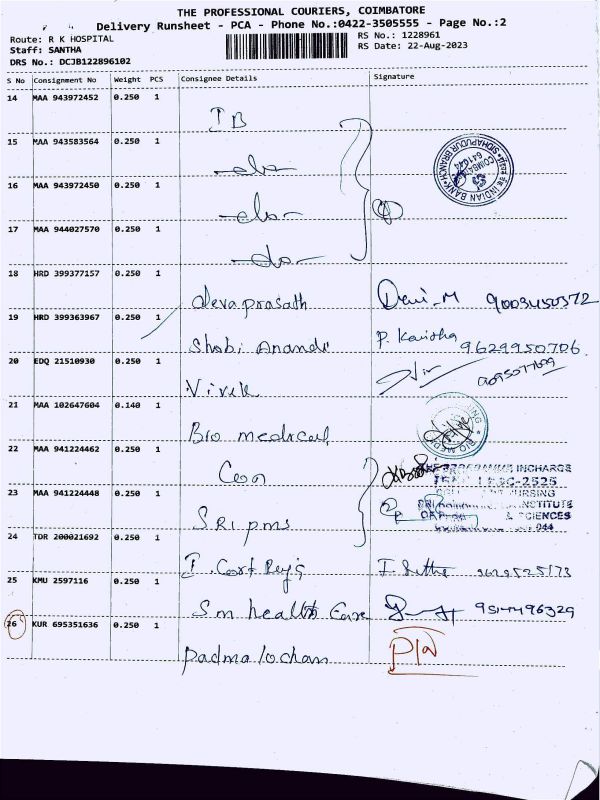 THE PROFESSIONAL COURIERS, COIMBATORE
Delivery Runsheet - PCA - Phone No.:0422-3505555 - Page No.:2
Route: R K HOSPITAL
RS No.: 1228961
Staff: SANTHA
RS Date: 22-Aug-2023
DRS No.: DCJB122896102
S No Consignment No Weight PCS Consignee Details Signature
14 MAA 943972452 0.250 1
IB
15 MAA 943583564 0.250 1
-do-
16 MAA 943972450 0.250 1
-do-
17 MAA 944027570 0.250 1
-do-
INDIAN BANK
SIDHAPUDUR BRANCH
COIMBATORE
641044
18 HRD 399377157 0.250 1
devaprasath Devi-M 9003450372
19 HRD 399363967 0.250 1
Shobi Anandi P. Kavitha 9629950706
20 EDQ 21510930 0.250 1
Vivek
21 MAA 102647604 0.140 1
Bio medical
22 MAA 941224462 0.250 1
Con
PROGRAMME INCHARGE
2525
NURSING
INSTITUTE
& SCIENCES
044
23 MAA 941224448 0.250 1
SRI pms
24 TDR 200021692 0.250 1
25 KMU 2597116 0.250 1
Sm health Care 9514496329
26 KUR 695351636 0.250 1
padma locham